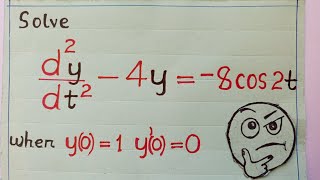 Solve
d²y/dt² − 4y = −8cos2t
when y(0) = 1 y'(0) = 0